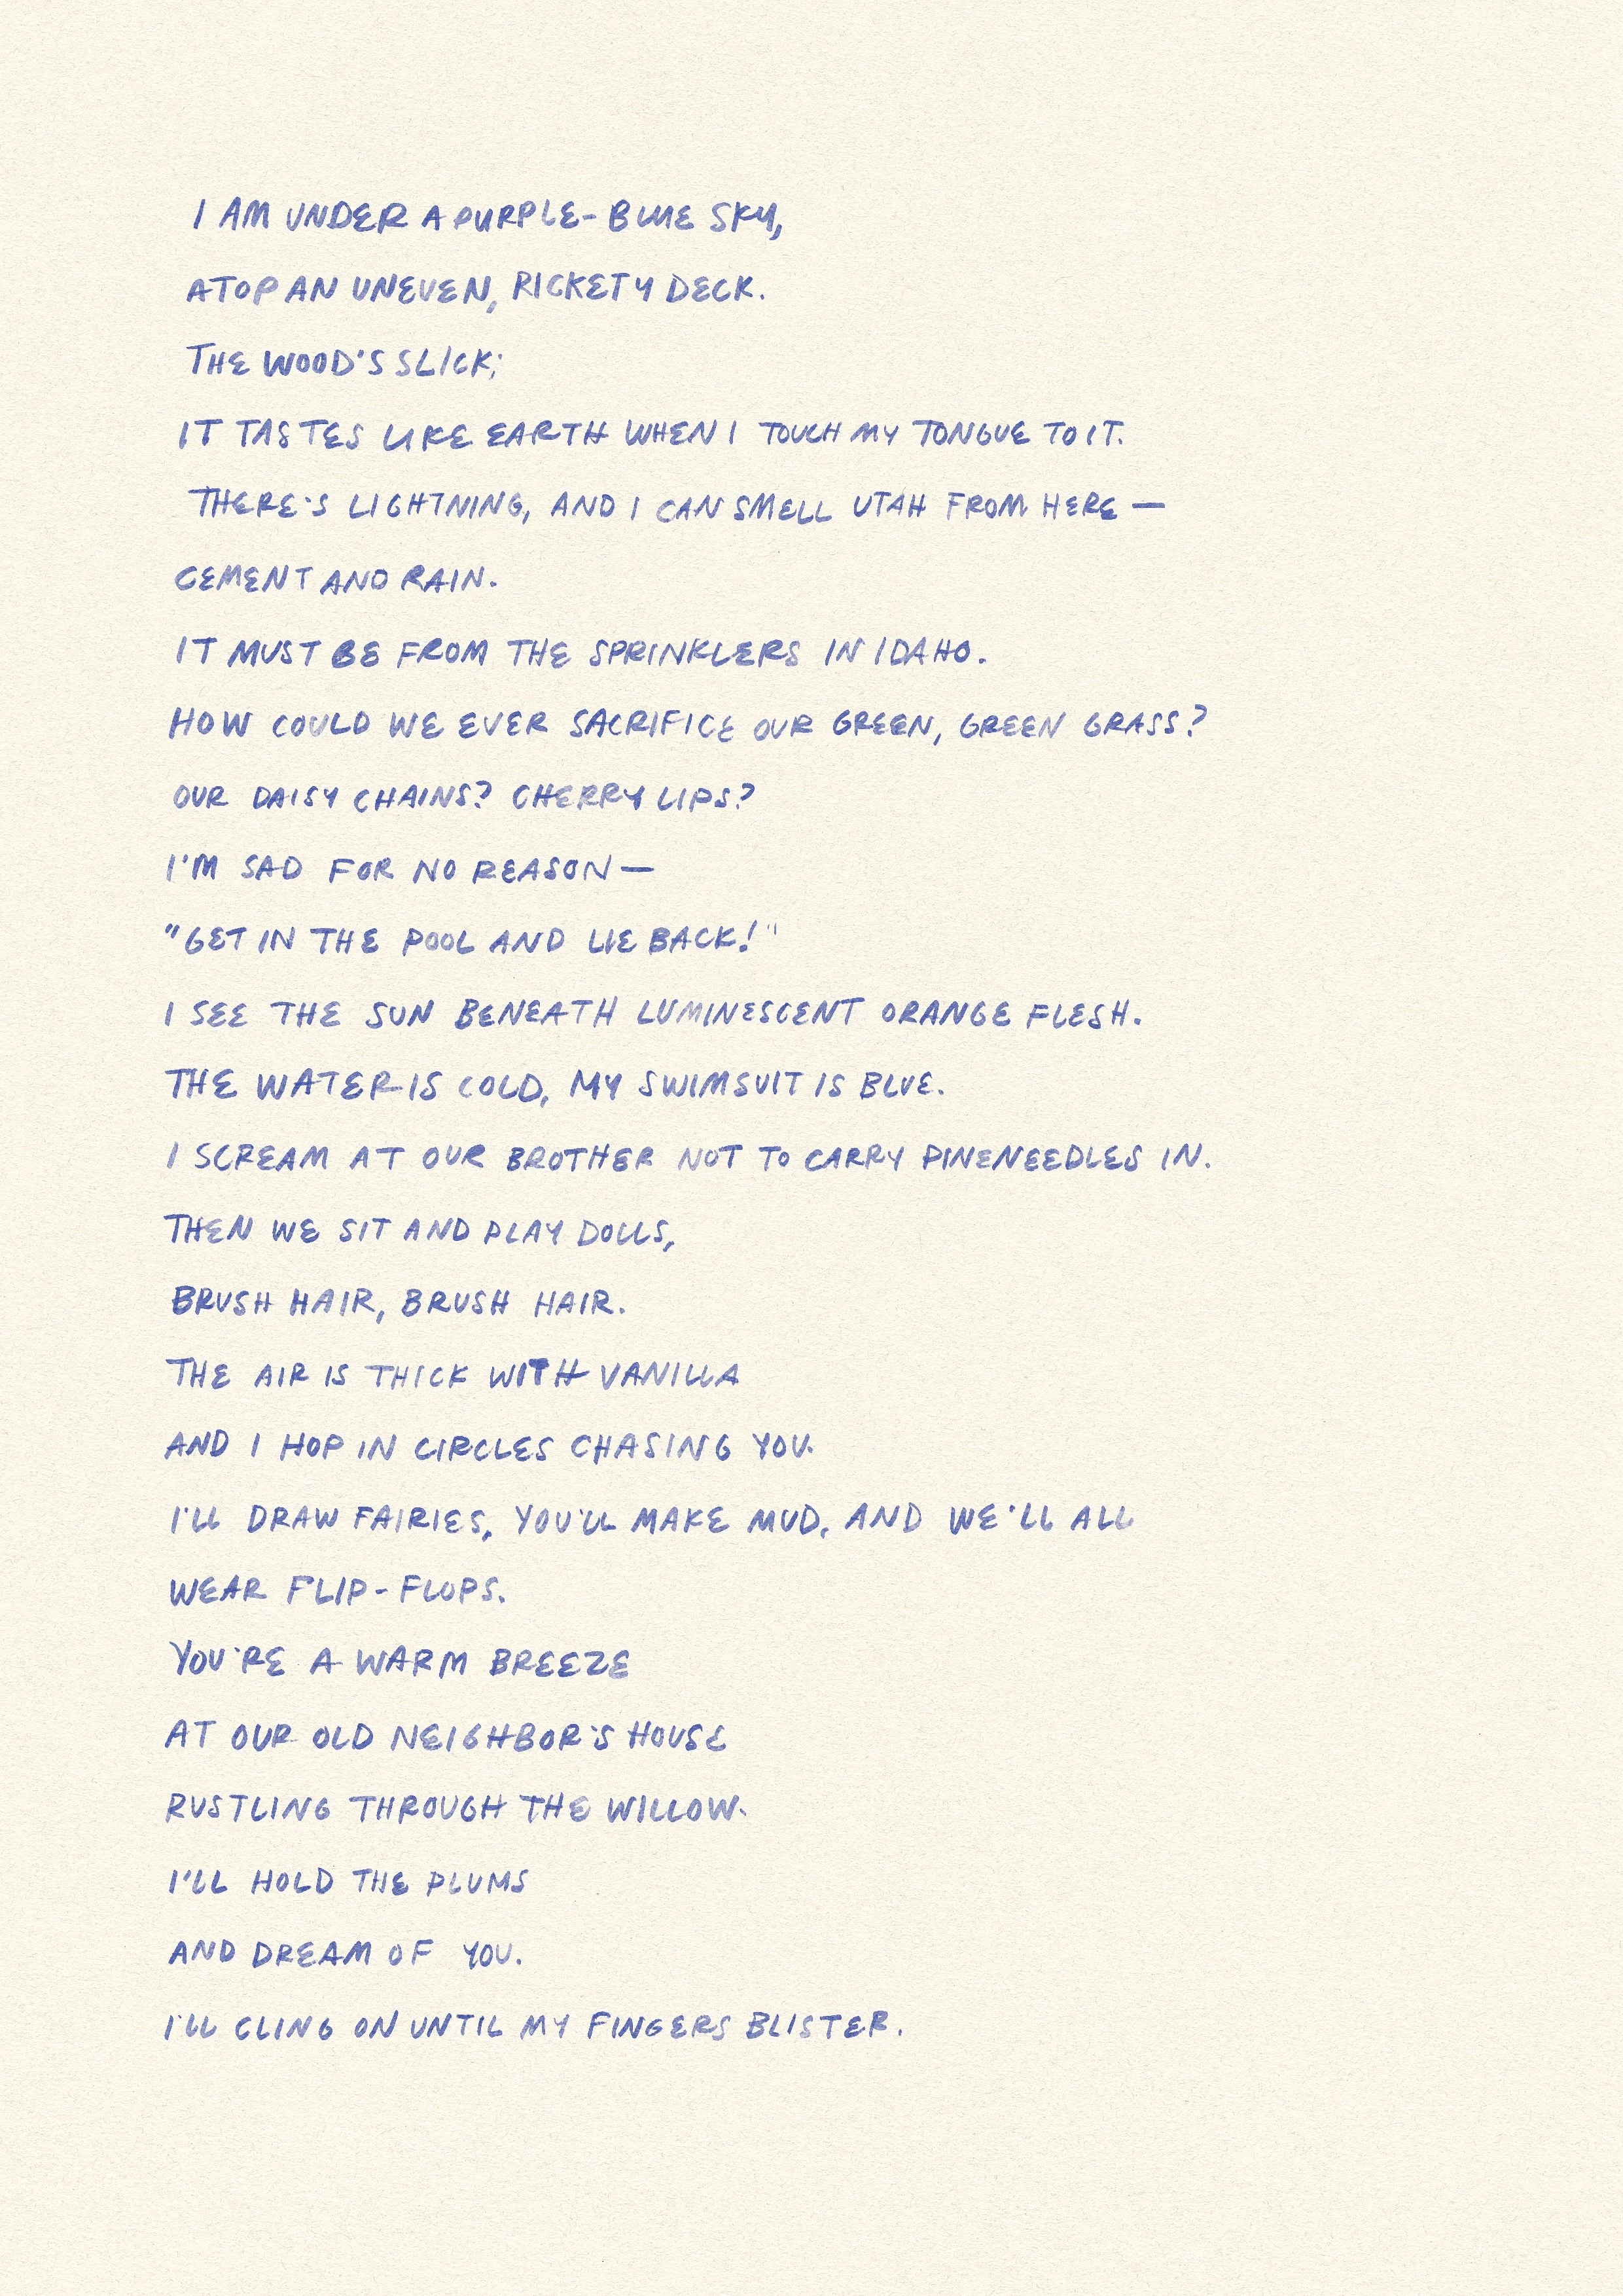 I AM UNDER A PURPLE-BLUE SKY,
ATOP AN UNEVEN, RICKETY DECK.
THE WOOD'S SLICK;
IT TASTES LIKE EARTH WHEN I TOUCH MY TONGUE TO IT.
THERE'S LIGHTNING, AND I CAN SMELL UTAH FROM HERE —
CEMENT AND RAIN.
IT MUST BE FROM THE SPRINKLERS IN IDAHO.
HOW COULD WE EVER SACRIFICE OUR GREEN, GREEN GRASS?
OUR DAISY CHAINS? CHERRY LIPS?
I'M SAD FOR NO REASON —
"GET IN THE POOL AND LIE BACK!"
I SEE THE SUN BENEATH LUMINESCENT ORANGE FLESH.
THE WATER IS COLD, MY SWIMSUIT IS BLUE.
I SCREAM AT OUR BROTHER NOT TO CARRY PINENEEDLES IN.
THEN WE SIT AND PLAY DOLLS,
BRUSH HAIR, BRUSH HAIR.
THE AIR IS THICK WITH VANILLA
AND I HOP IN CIRCLES CHASING YOU.
I'LL DRAW FAIRIES, YOU'LL MAKE MUD, AND WE'LL ALL
WEAR FLIP-FLOPS.
YOU'RE A WARM BREEZE
AT OUR OLD NEIGHBOR'S HOUSE
RUSTLING THROUGH THE WILLOW.
I'LL HOLD THE PLUMS
AND DREAM OF YOU.
I'LL CLING ON UNTIL MY FINGERS BLISTER.